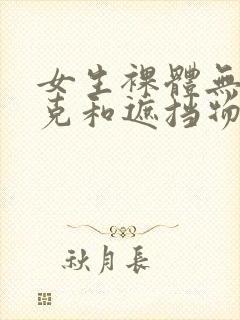 女生裸體無
克和遮挡物
秋月長